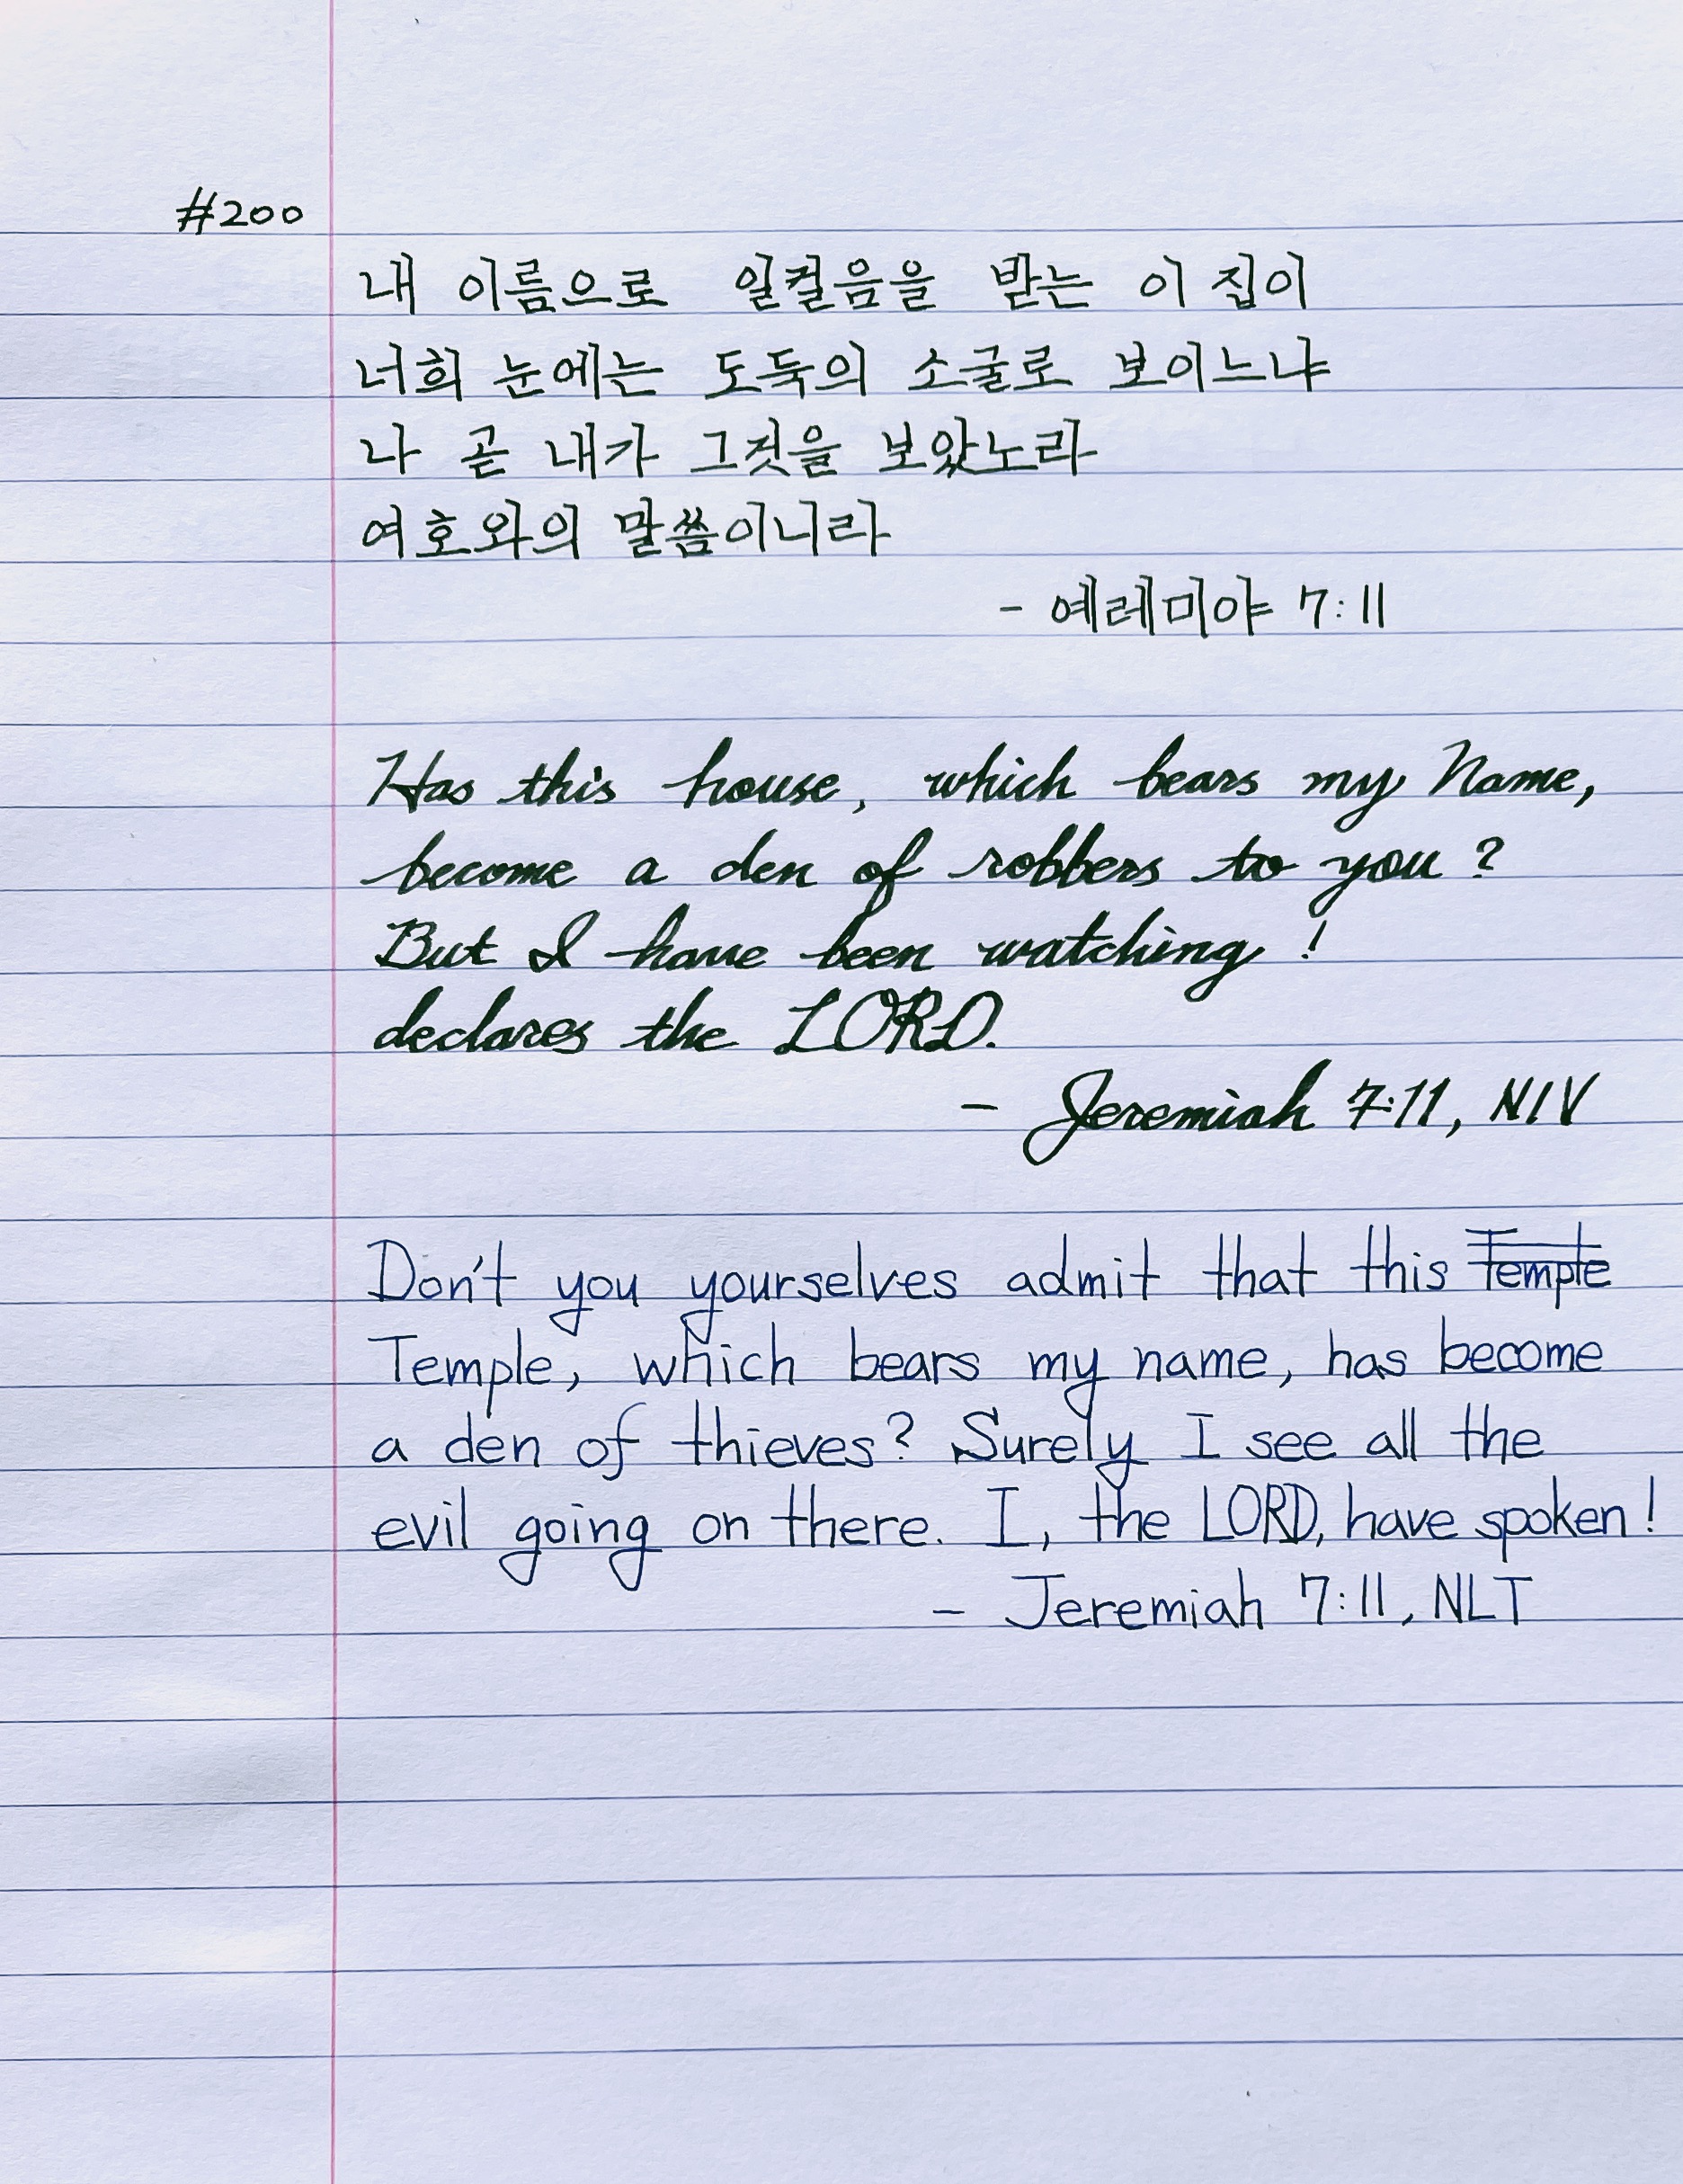 #200
내 이름으로 일컬음을 받는 이 집이
너희 눈에는 도둑의 소굴로 보이느냐
나 곧 내가 그것을 보았노라
여호와의 말씀이니라
- 예레미야 7:11
Has this house, which bears my Name,
become a den of robbers to you?
But I have been watching!
declares the LORD.
- Jeremiah 7:11, NIV
Don't you yourselves admit that this Temple
Temple, which bears my name, has become
a den of thieves? Surely I see all the
evil going on there. I, the LORD, have spoken!
- Jeremiah 7:11, NLT